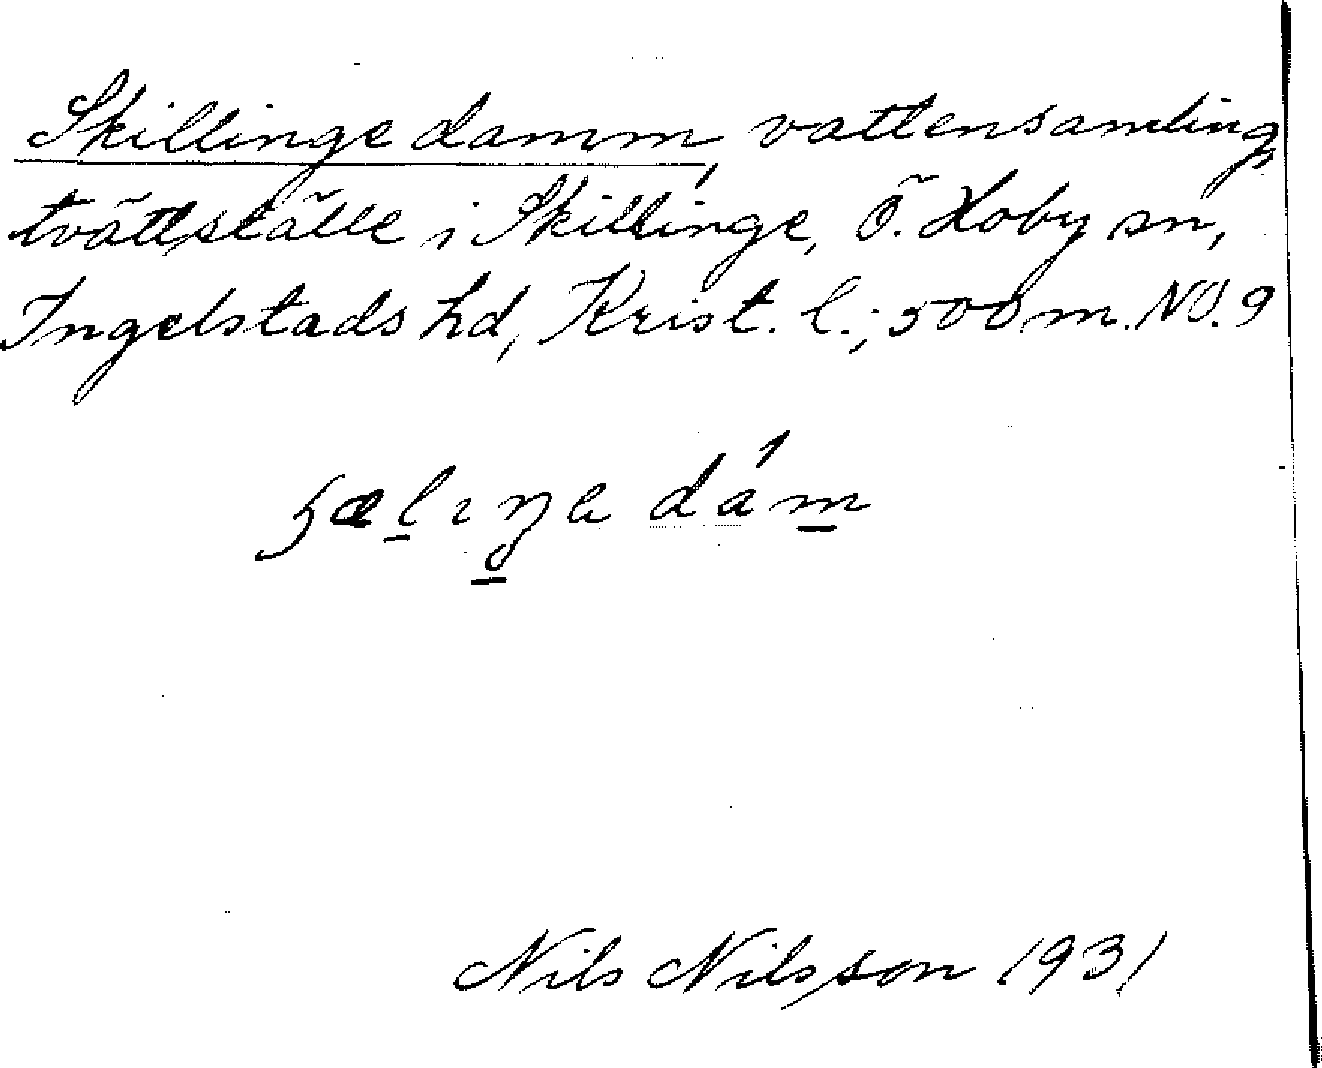 Skillinge damm, vattensamling,
tvättställe i Skillinge, Ö. Hoby sn,
Ingelstads hd, Krist. l.; 500 m. NO. 9
dám
Nils Nilsson 1931